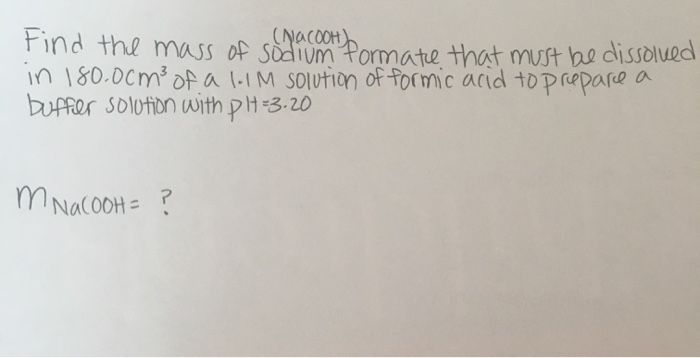 (NaCOOH)
Find the mass of sodium formate that must be dissolved
in 180.0cm³ of a 1.1M solution of formic acid to prepare a
buffer solution with pH=3.20
mNaCOOH= ?